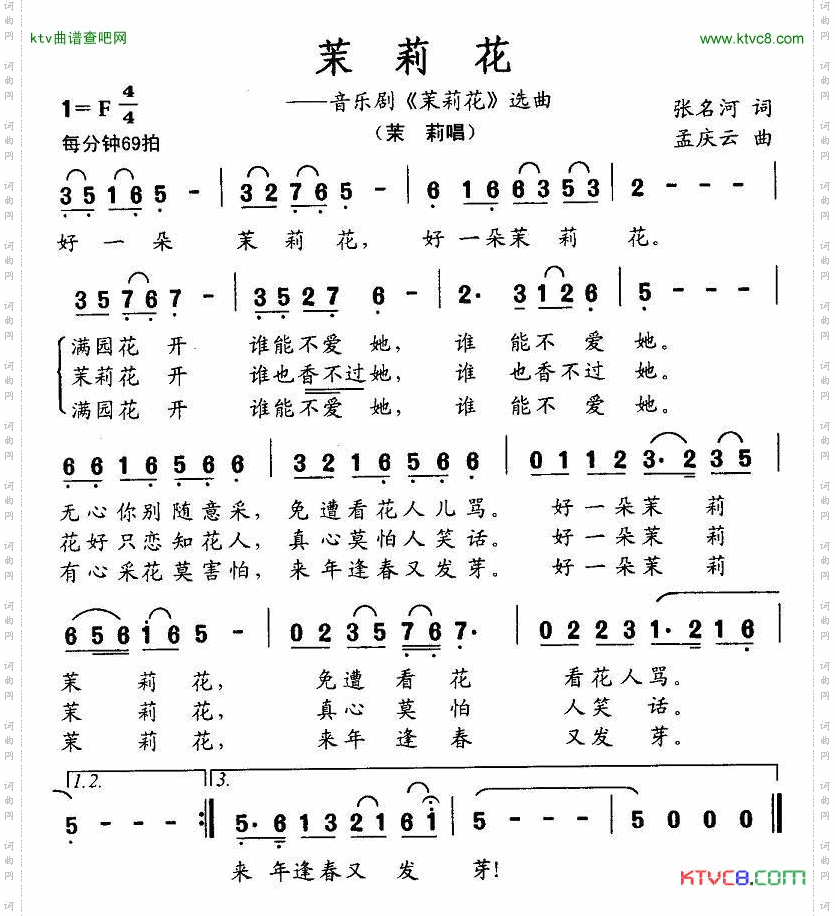 ktv曲谱查吧网
www.ktvc8.com
茉莉花
1=F 4/4
——音乐剧《茉莉花》选曲
张名河 词
每分钟69拍
(茉 莉唱)
孟庆云 曲
3 5 1 6 5 - | 3 2 7 6 5 - | 6 1 6 6 3 5 3 | 2 - - - |
好 一 朵 茉 莉 花, 好 一朵茉 莉 花。
3 5 7 6 7 - | 3 5 2 7 6 - | 2· 3 1 2 6 | 5 - - - |
满园花 开 谁能不爱 她, 谁 能不 爱 她。
茉莉花 开 谁也香不过她, 谁 也香不 过 她。
满园花 开 谁能不爱 她, 谁 能不 爱 她。
6 6 1 6 5 6 6 | 3 2 1 6 5 6 6 | 0 1 1 2 3· 2 3 5 |
无心你别随意采, 免遭看花人儿骂。 好一朵茉 莉
花好只恋知花人, 真心莫怕人笑话。 好一朵茉 莉
有心采花莫害怕, 来年逢春又发芽。 好一朵茉 莉
6 5 6 1 6 5 - | 0 2 3 5 7 6 7· | 0 2 2 3 1· 2 1 6 |
茉 莉 花, 免遭 看 花 看花人骂。
茉 莉 花, 真心 莫 怕 人笑 话。
茉 莉 花, 来年 逢 春 又发 芽。
1.2. 3.
5 - - - :| 5· 6 1 3 2 1 6 1 | 5 - - - | 5 0 0 0 ||
来 年逢春又 发 芽!
KTVC8.COM
词曲网 词曲网 词曲网 词曲网 词曲网